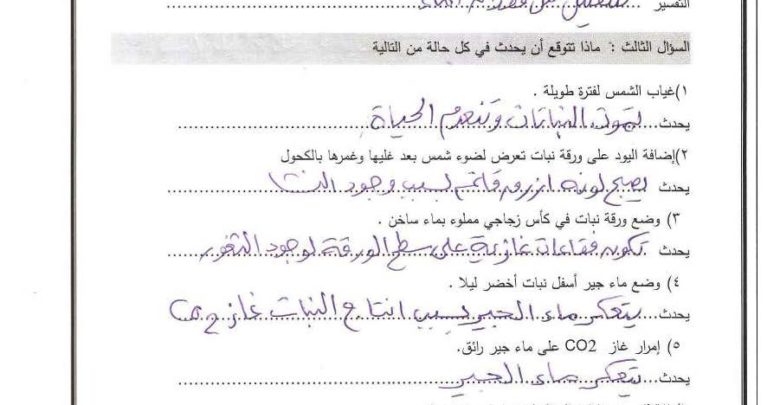 التفسير
السؤال الثالث : ماذا تتوقع أن يحدث في كل حالة من التالية
١)غياب الشمس لفترة طويلة .
يحدث... تموت النباتات وتنعدم الحياة
٢)إضافة اليود على ورقة نبات تعرض لضوء شمس بعد غليها وغمرها بالكحول
يحدث يصبح لونه ازرق قاتم بسبب وجود النشا
٣) وضع ورقة نبات في كأس زجاجي مملوء بماء ساخن .
يحدث تكون فقاعات غازية على سطح الورقة لوجود الثغور
٤) وضع ماء جير أسفل نبات أخضر ليلا .
يحدث... يتعكر ماء الجير بسبب انتاج النبات غاز
٥) إمرار غاز CO2 على ماء جير رائق.
يحدث... يتعكر ماء الجير